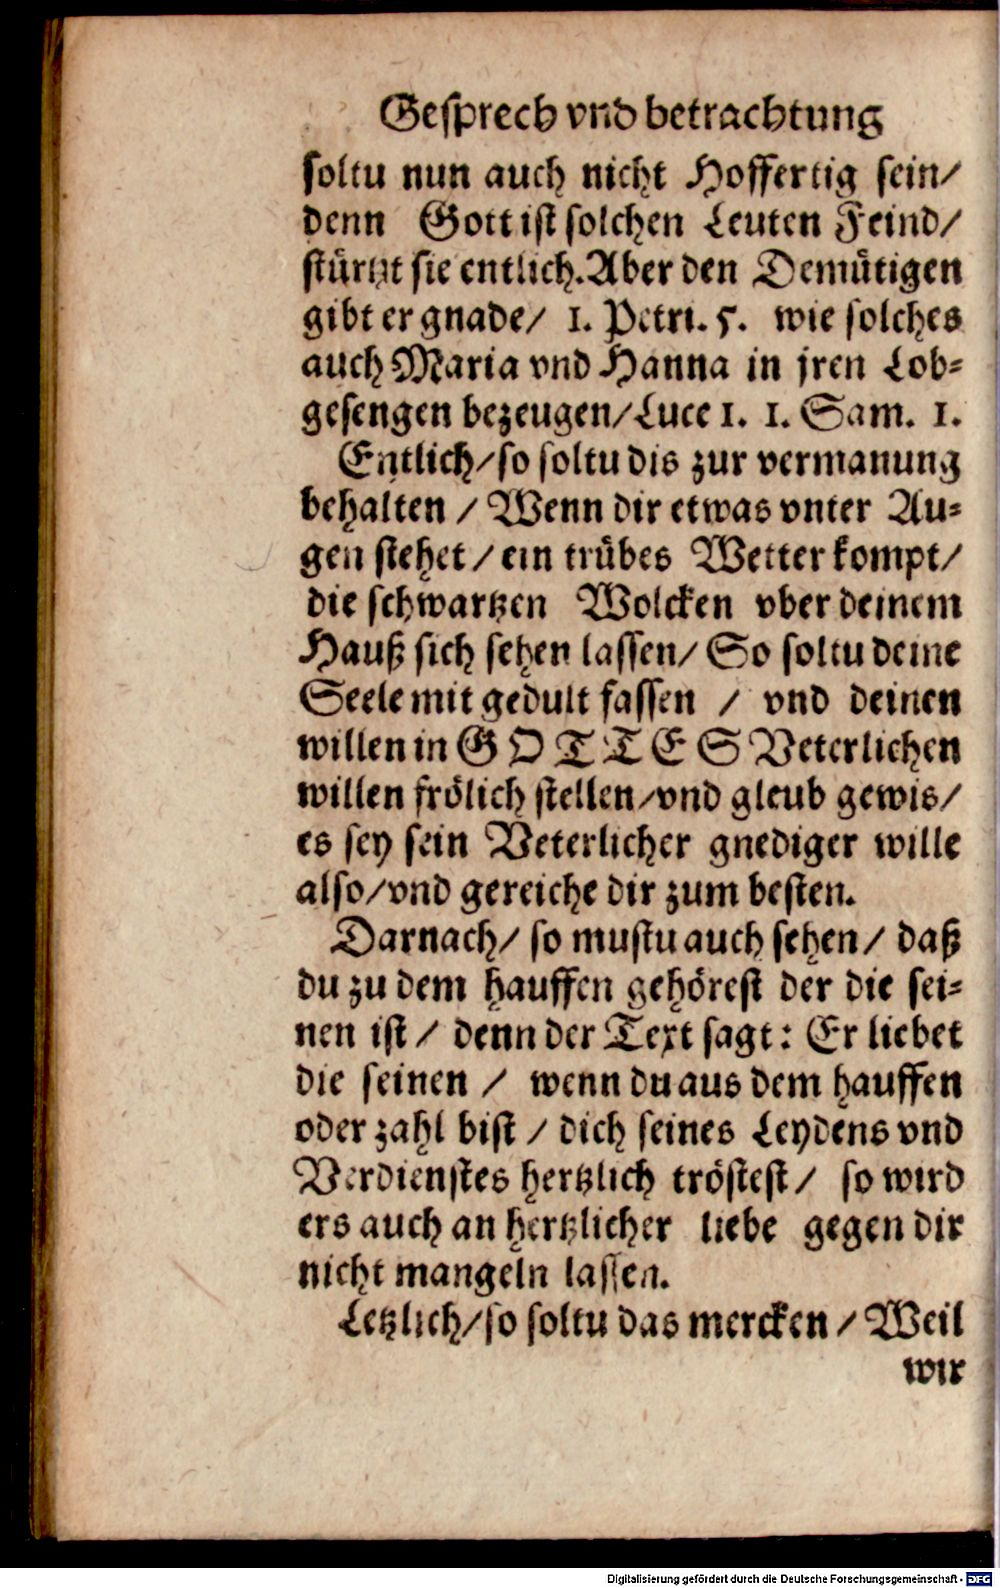 Gesprech vnd betrachtung
soltu nun auch nicht Hoffertig sein/
denn Gott ist solchen Leuten Feind/
stürtzt sie entlich. Aber den Demütigen
gibt er gnade/ 1. Petri. 5. wie solches
auch Maria vnd Hanna in jren Lob-
gesengen bezeugen/Luce 1. 1. Sam. 1.
Entlich/so soltu dis zur vermanung
behalten / Wenn dir etwas vnter Au-
gen stehet / ein trübes Wetter kompt/
die schwartzen Wolcken vber deinem
Hauß sich sehen lassen/ So soltu deine
Seele mit gedult fassen / vnd deinen
willen in GOTTES Veterlichen
willen frölich stellen/vnd gleub gewis/
es sey sein Veterlicher gnediger wille
also/vnd gereiche dir zum besten.
Darnach/ so mustu auch sehen/ daß
du zu dem hauffen gehörest der die sei-
nen ist / denn der Text sagt: Er liebet
die seinen / wenn du aus dem hauffen
oder zahl bist / dich seines Leydens vnd
Verdienstes hertzlich tröstest/ so wird
ers auch an hertzlicher liebe gegen dir
nicht mangeln lassen.
Letzlich/so soltu das mercken / Weil
wir
Digitalisierung gefördert durch die Deutsche Forschungsgemeinschaft - DFG